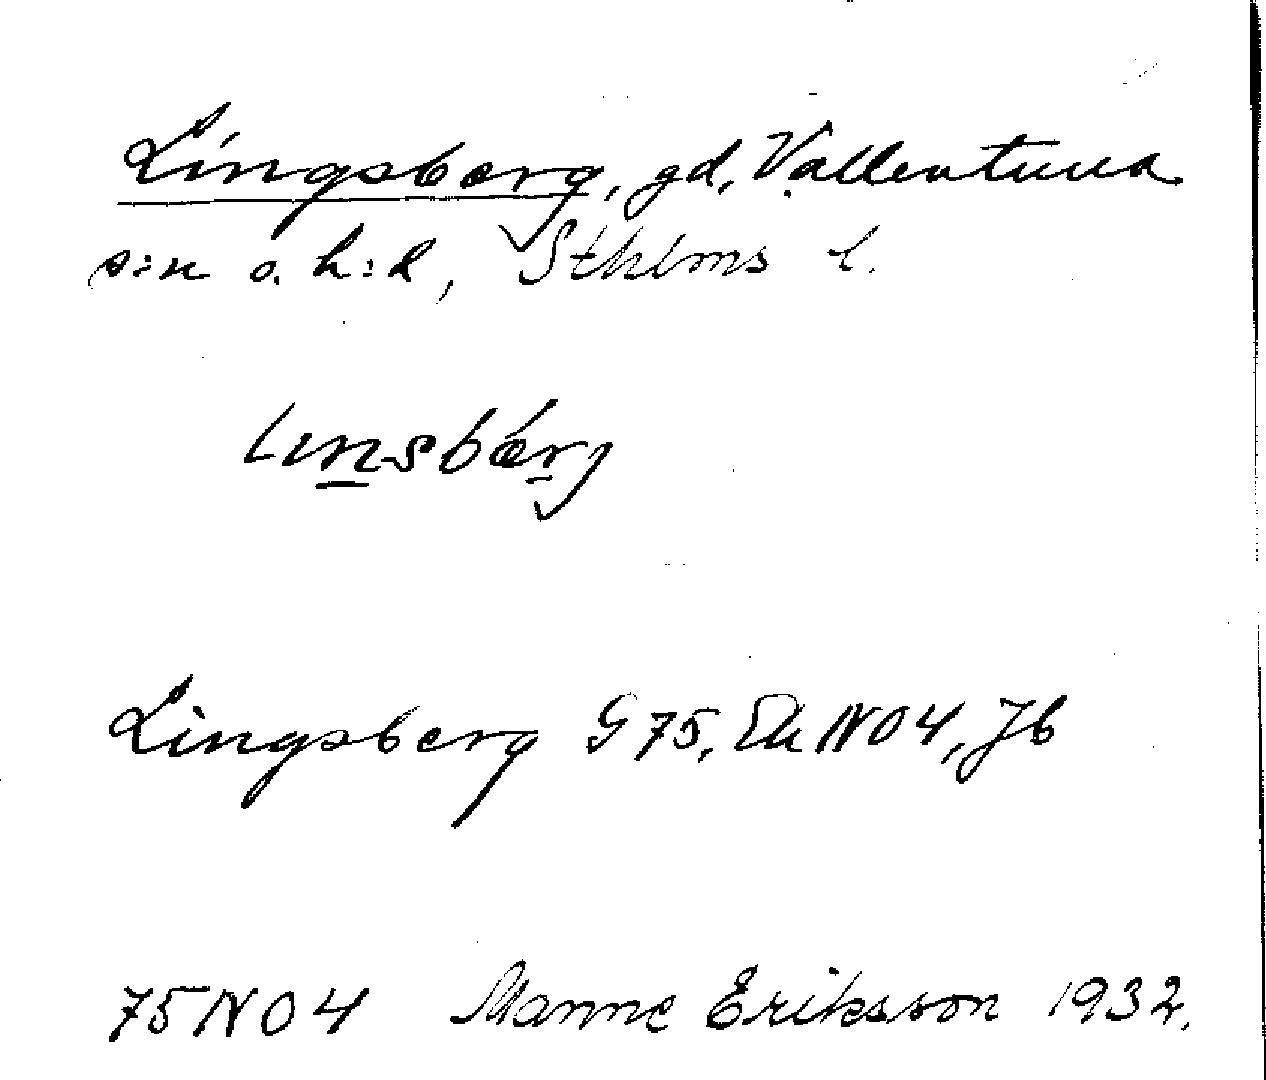 Lingsberg, gd, Vallentuna
s:n o. h:d, Sthlms l.
Lingsberg G 75, Ek NO4, Jb
75NO4 Manne Eriksson 1932.